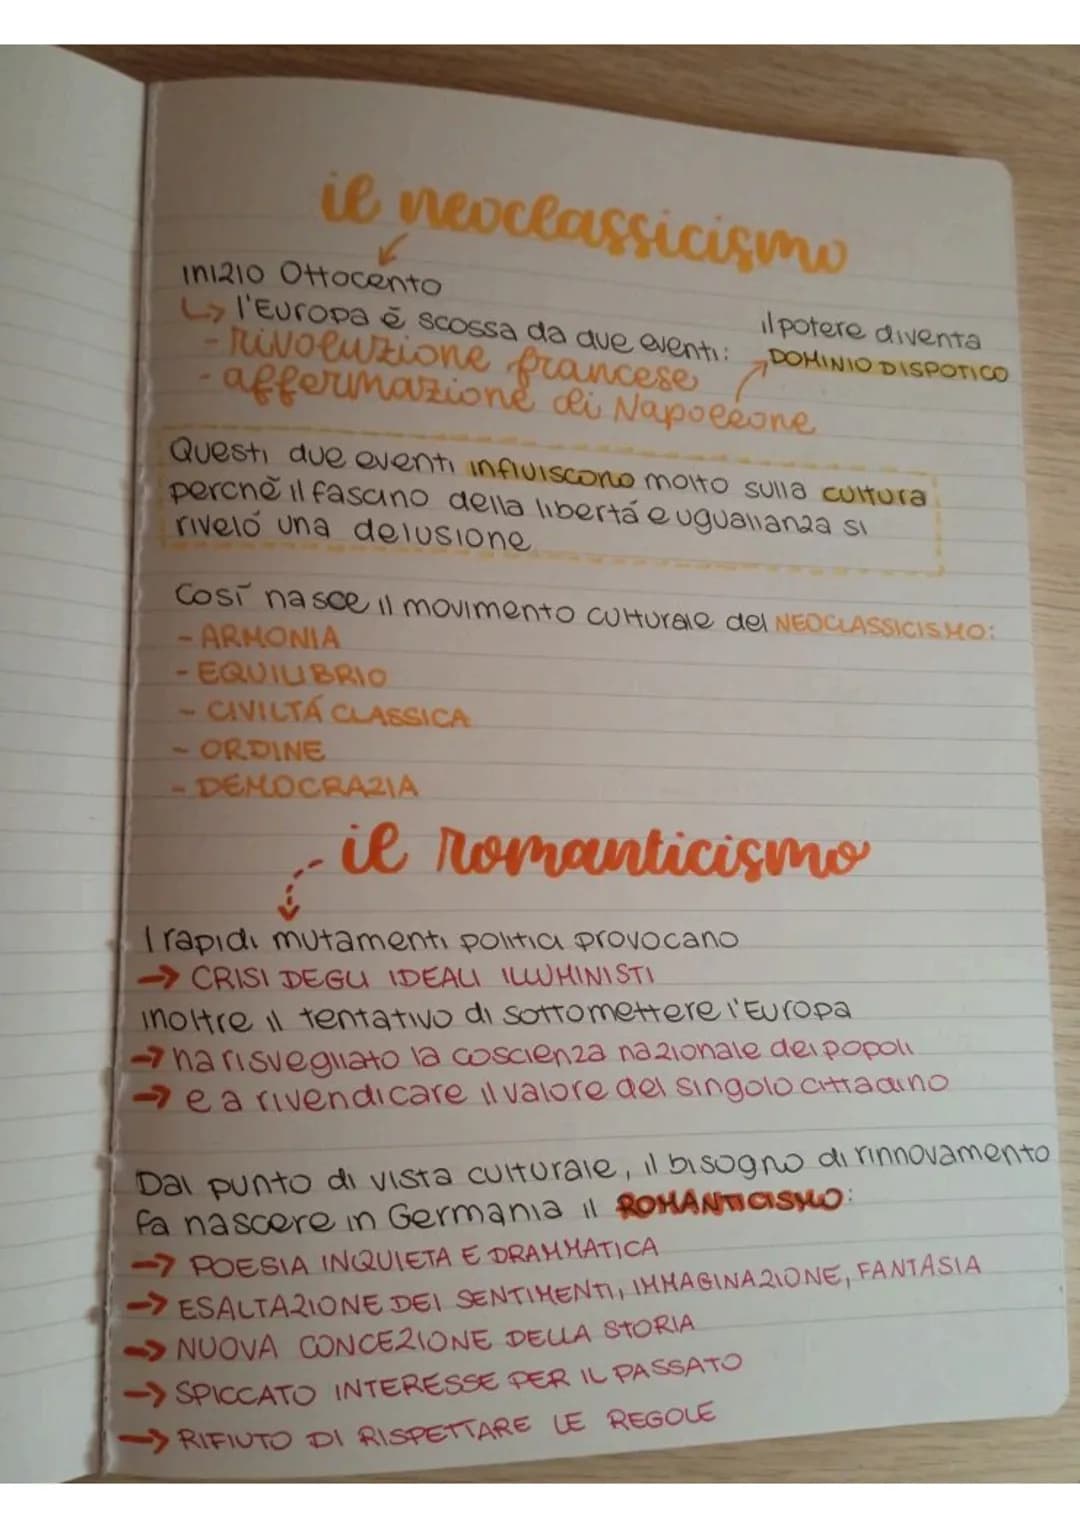 il neoclassicismo
inizio Ottocento
↳ l'Europa é scossa da due eventi:
- rivoluzione francese
- affermazione di Napoleone
il potere diventa
DOMINIO DISPOTICO
Questi due eventi influiscono molto sulla cultura
perché il fascino della libertá e uguallianza si
riveló una delusione
Così nasce il movimento culturale del NEOCLASSICISMO:
- ARMONIA
- EQUILIBRIO
- CIVILTÁ CLASSICA
- ORDINE
- DEMOCRAZIA
il romanticismo
I rapidi mutamenti politici provocano
→ CRISI DEGLI IDEALI ILLUMINISTI
inoltre il tentativo di sottomettere l'Europa
→ ha risvegliato la coscienza nazionale dei popoli
→ e a rivendicare il valore del singolo cittadino
Dal punto di vista culturale, il bisogno di rinnovamento
fa nascere in Germania il ROMANTICISMO:
→ POESIA INQUIETA E DRAMMATICA
→ ESALTAZIONE DEI SENTIMENTI, IMMAGINAZIONE, FANTASIA
→ NUOVA CONCEZIONE DELLA STORIA
→ SPICCATO INTERESSE PER IL PASSATO
→ RIFIUTO DI RISPETTARE LE REGOLE